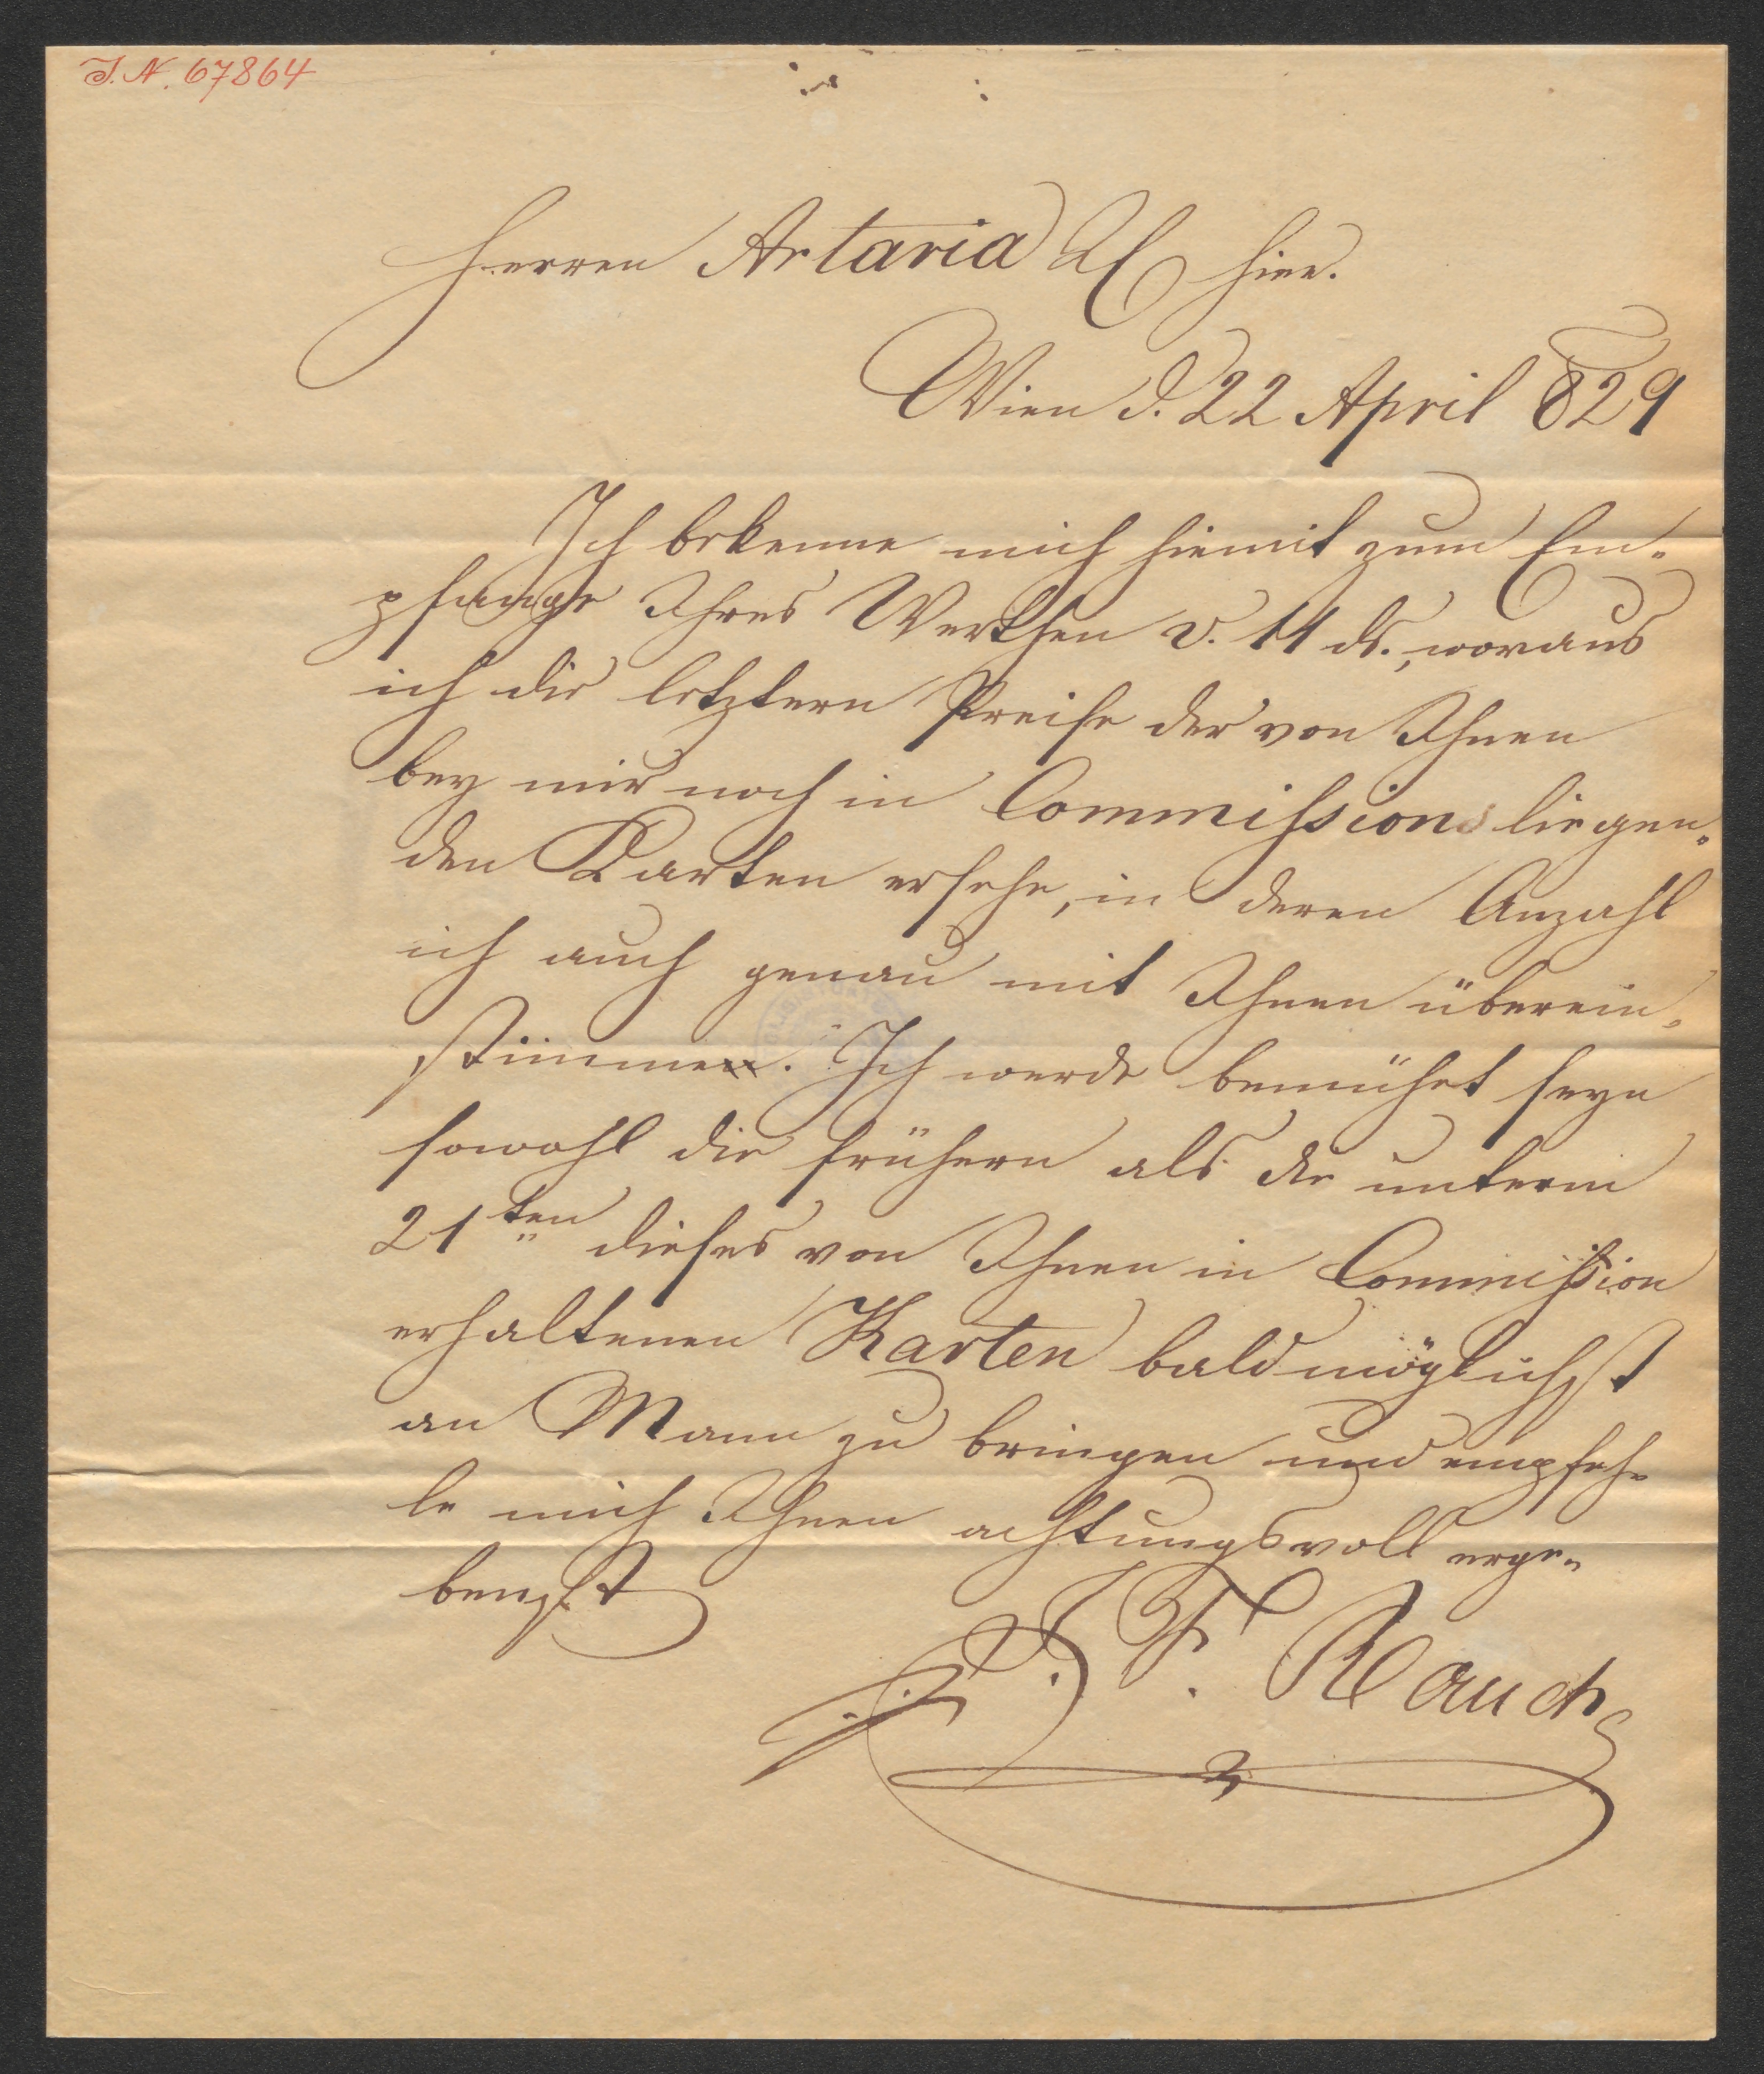 I.N. 67864
Herren Artaria & C hier.
Wien d. 22 April 829
Ich bekenne mich hiemit zum Em-
pfange Ihres Werthen v. 14 ds., woraus
ich die letztern Preise der von Ihnen
bey mir noch in Commission liegen-
den Karten ersehe, in deren Anzahl
ich auch genau mit Ihnen überein-
stimme. Ich werde bemühet seyn
sowohl die frühern als die unterm
21ten dieses von Ihnen in Commission
erhaltenen Karten baldmöglichst
an Mann zu bringen und empfeh-
le mich Ihnen achtungsvoll erge-
benst
J. F. Rauch